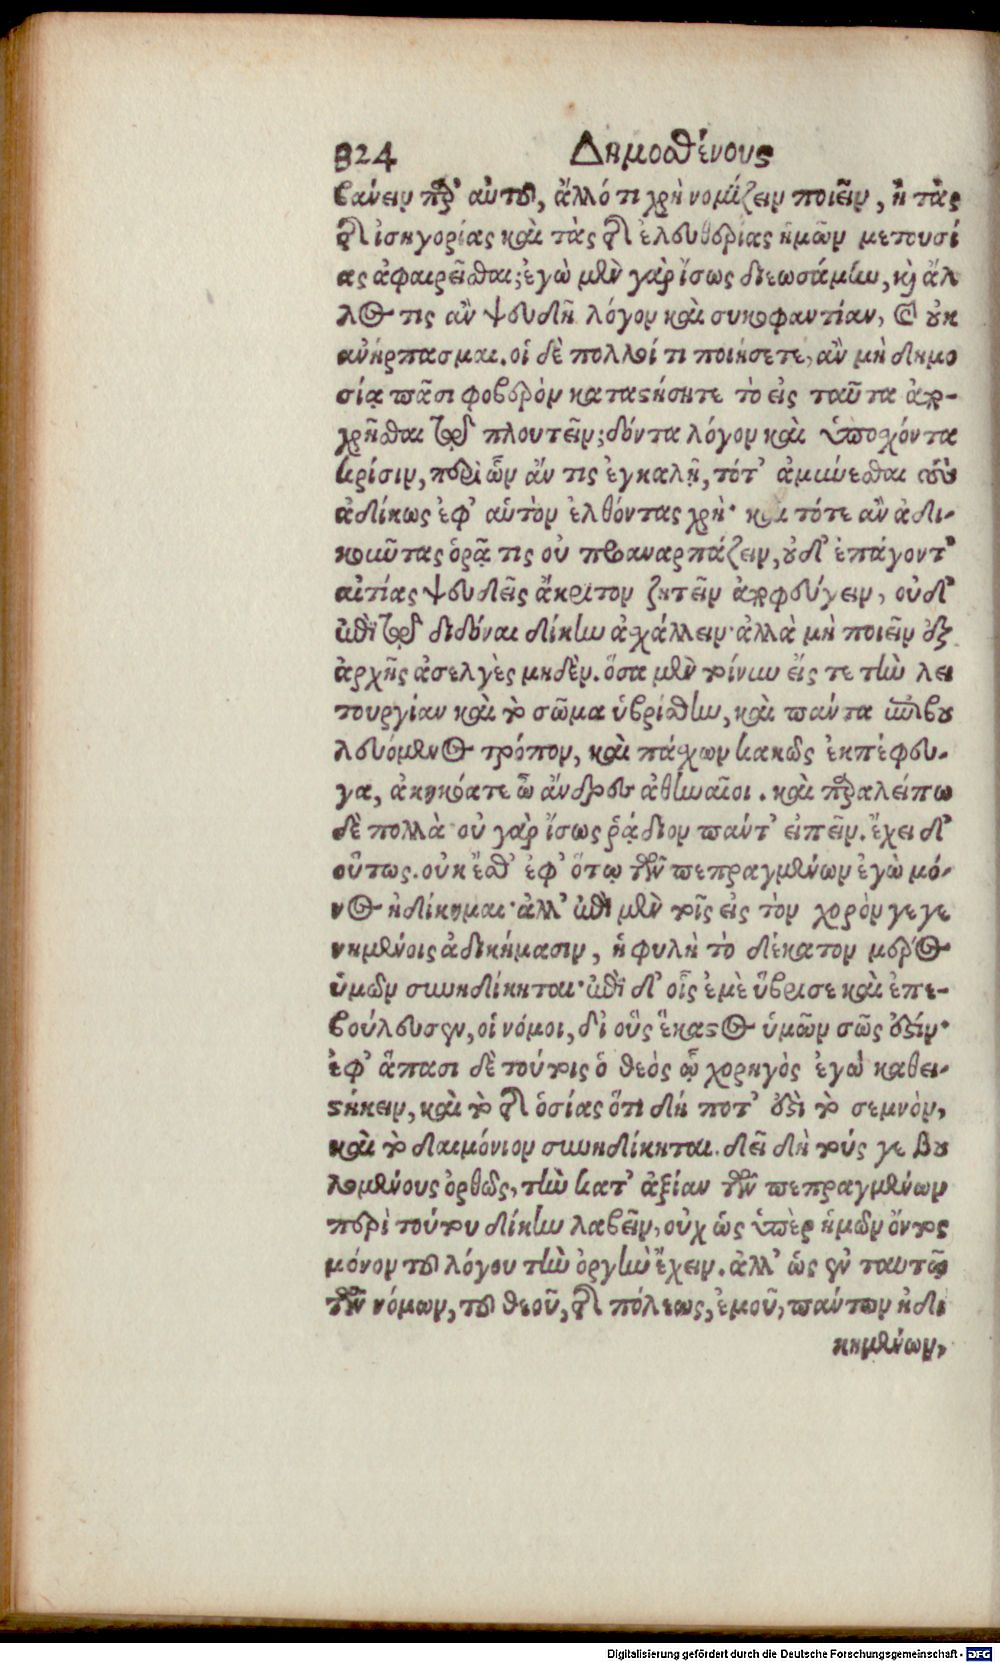 824 Δημοσθένους
βάνειν παρ' αὐτοῦ, ἄλλό τι χρὴ νομίζειν ποιεῖν, ἢ τὰς
τῆς ἰσηγορίας καὶ τὰς τῆς ἐλευθερίας ἡμῶν μετουσί
ας ἀφαιρεῖσθαι; ἐγὼ μὲν γὰρ ἴσως διεωσάμην, καὶ ἄλ
λος τις ἂν ψευδῆ λόγον καὶ συκοφαντίαν, καὶ οὐκ
ἀνήρπασμαι. οἱ δὲ πολλοὶ τι ποιήσετε, ἂν μὴ δημο
σίᾳ πᾶσι φοβερὸν καταστήσητε τὸ εἰς ταῦτα ἀπο-
χρῆσθαι τῷ πλουτεῖν; δόντα λόγον καὶ ὑποσχόντα
κρίσιν, περὶ ὧν ἄν τις ἐγκαλῇ, τότ' ἀμύνεσθαι τοὺς
ἀδίκως ἐφ' αὑτὸν ἐλθόντας χρὴ· καὶ τότε ἂν ἀδι-
κοῦντας ὁρᾷ τις οὐ προαναρπάζειν, οὐδ' ἐπάγοντ'
αἰτίας ψευδεῖς ἄκριτον ζητεῖν ἀποφεύγειν, οὐδ'
ἐπὶ τῷ διδόναι δίκην ἀσχάλλειν· ἀλλὰ μὴ ποιεῖν ἐξ
ἀρχῆς ἀσελγὲς μηδὲν. ὅσα μὲν τοίνυν εἴς τε τὴν λει
τουργίαν καὶ τὸ σῶμα ὑβρίσθην, καὶ πάντα ἐπιβου
λευόμενος τρόπον, καὶ πάσχων κακῶς ἐκπέφευ-
γα, ἀκηκόατε ὦ ἄνδρες ἀθηναῖοι. καὶ παραλείπω
δὲ πολλὰ οὐ γὰρ ἴσως ῥᾴδιον πάντ' εἰπεῖν. ἔχει δ'
οὕτως. οὐκ ἔσθ' ἐφ' ὅτῳ τῶν πεπραγμένων ἐγὼ μό-
νος ἠδίκημαι· ἀλλ' ἐπὶ μὲν τοῖς εἰς τὸν χορὸν γεγε
νημένοις ἀδικήμασιν, ἡ φυλὴ τὸ δέκατον μέρος
ὑμῶν συνηδίκηται· ἐπὶ δ' οἷς ἐμὲ ὕβρισε καὶ ἐπε-
βούλευσεν, οἱ νόμοι, δι' οὓς ἕκαστος ὑμῶν σῶς ἐστίν·
ἐφ' ἅπασι δὲ τούτοις ὁ θεὸς ᾧ χορηγὸς ἐγὼ καθει-
στήκειν, καὶ τὸ τῆς ὁσίας ὅτι δή ποτ' ἐστὶ τὸ σεμνὸν,
καὶ τὸ δαιμόνιον συνηδίκηται. δεῖ δὴ τούς γε βου
λομένους ὀρθῶς, τὴν κατ' ἀξίαν τῶν πεπραγμένων
περὶ τούτου δίκην λαβεῖν, οὐχ ὡς ὑπὲρ ἡμῶν ὄντος
μόνον τοῦ λόγου τὴν ὀργὴν ἔχειν. ἀλλ' ὡς ἐν ταυτῷ
τῶν νόμων, τοῦ θεοῦ, τῆς πόλεως, ἐμοῦ, πάντων ἠδι
κημένων,
Digitalisierung gefördert durch die Deutsche Forschungsgemeinschaft - DFG